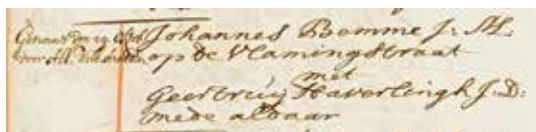 Johannes Bomme J: M.
op de Vlamingstraat
met
Geertruij Haverlingh J: D:
mede aldaar